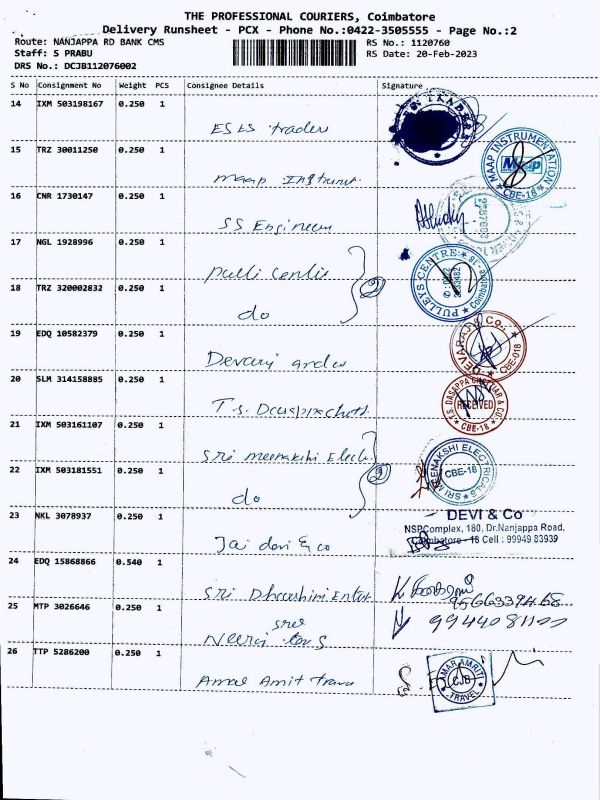 THE PROFESSIONAL COURIERS, Coimbatore
Delivery Runsheet - PCX - Phone No.:0422-3505555 - Page No.:2
Route: NANJAPPA RD BANK CMS RS No.: 1120760
Staff: S PRABU RS Date: 20-Feb-2023
DRS No.: DCJB112076002
S No Consignment No Weight PCS Consignee Details Signature
14 IXM 503198167 0.250 1
ES ES trader
15 TRZ 30011250 0.250 1
MAAP INSTRUMENTATION
Maap
CBE-18
Maap Instrumt
16 CNR 1730147 0.250 1
SS Engineers
17 NGL 1928996 0.250 1
Pulli Centre
PULLEYS CENTRE
18 TRZ 320002832 0.250 1
do
2
19 EDQ 10582379 0.250 1
DEVARAJ & Co.
CBE-018
Devaraj and co
20 SLM 314158885 0.250 1
T.S. DASAPPA CHETTIAR & CO.
RECEIVED
CBE-18
21 IXM 503161107 0.250 1
Sri meenakshi Elect.
SRI MEENAKSHI ELECTRICALS
CBE-18
22 IXM 503181551 0.250 1
do
2
23 NKL 3078937 0.250 1
DEVI & Co
NSPComplex, 180, Dr.Nanjappa Road,
Coimbatore - 18 Cell : 99949 83939
Jai devi & co
24 EDQ 15868866 0.540 1
25 MTP 3026646 0.250 1
sree
Neeraj
26 TTP 5286200 0.250 1
AMAR AMRITI
CJB
TRAVEL
Amar Amit Trava